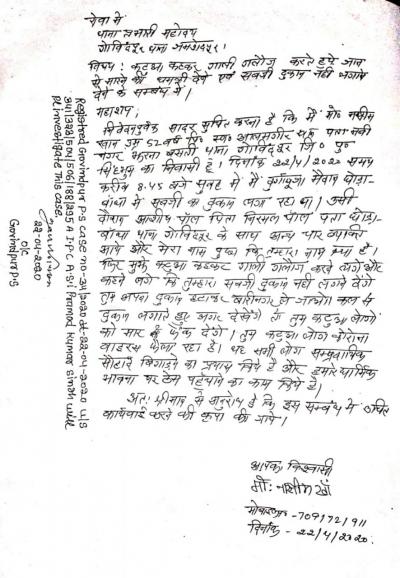 सेवा में
थाना प्रभारी महोदय
गोविंदपुर थाना जमशेदपुर।
विषय: कटुआ कहकर गाली गलौज करते हुये जान
से मारने की धमकी देने एवं सब्जी दुकान नहीं लगाने
देने के सम्बंध में।
महाशय,
निवेदनपूर्वक सादर सूचित करना है कि मैं मो० नसीम
खान उम्र 52 वर्ष पि० स्व०
नगर बस्ती थाना गोविंदपुर जि० पू०
सिंहभूम का निवासी हूँ। दिनांक 22/4/2020 समय
करीब 8.45 बजे सुबह में मैं दुर्गापूजा मैदान घोड़ा-
बांधा में सब्जी का दुकान लगा रहा था। उसी
दौरान पोल पिता पोल पता घोड़ा-
बांधा थाना गोविंदपुर के साथ अन्य चार व्यक्ति
आये और मेरा नाम पूछा कि तुम्हारा नाम क्या है।
फिर मुझे कटुआ कहकर गाली गलौज करने लगे और
कहने लगे कि तुम्हारा सब्जी दुकान नहीं लगने देंगे
तुम अपना दुकान हटाकर ले जाओ। कल से
दुकान लगाते हुए अगर देखेंगे तो तुम लोगों
को मार के फेंक देंगे। तुम कटुआ लोग कोरोना
वाइरस फैला रहा है। यह सभी लोग सम्प्रदायिक
सौहार्द बिगाड़ने का प्रयास किये हैं और हमारे धार्मिक
भावना पर ठेस पहुंचाने का काम किये हैं।
अतः श्रीमान से अनुरोध है कि इस सम्बंध में उचित
कार्रवाई करने की कृपा की जाये।
आपका विश्वासी
मो: नसीम खाँ
मोबाइल -709172/911
दिनांक - 22/4/2020.
Registered Govindpur P.S case no-34/2020 dt-22-04-2020 u/s
341/323/504/506/188/295A IPC ASI Parmod Kumar Singh will
Pl investigate This case.
22-04-2020
O/C
Govindpur P.S